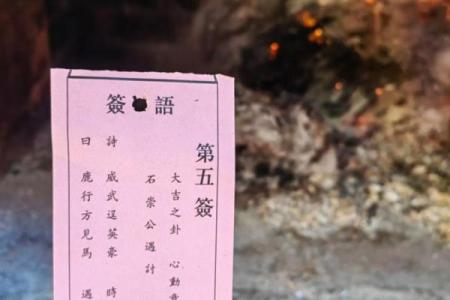 簽語
第五簽
大吉之卦 心動
石崇公遇討
詩 威武逞英豪 時
曰 鹿行方見馬 遇